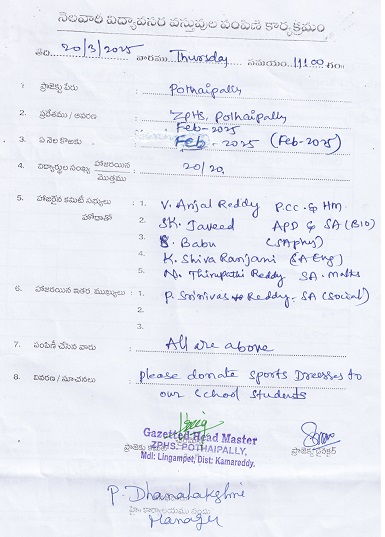 నెలవారి విద్యావసర వస్తువుల పంపిణి కార్యక్రమం
తేది 20/3/2025 వారము Thursday సమయం 11:00 గం॥
1. ప్రాజెక్టు పేరు : Pothaipally
2. ప్రదేశము / ఆవరణ : ZPHS, Pothaipally
Feb-2025
3. ఏ నెల కొఱకు : Feb - 2025 (Feb-2025)
4. విద్యార్థుల సంఖ్య హాజరయిన : 20/20.
మొత్తము
5. హాజరైన కమిటీ సభ్యులు : 1. V. Anjal Reddy P.CC. & HM
హోదాతో 2. SK. Javeed APD & SA (BIO)
3. S. Babu (SAphy)
4. K. Shiva Ranjani (SA-Eng)
5. N. Thirupathi Reddy SA-Maths
6. హాజరయిన ఇతర ముఖ్యులు : 1. P. Srinivas Reddy - SA (Social)
2.
3.
7. పంపిణీ చేసిన వారు : All are above
8. వివరణ / సూచనలు : please donate sports Dresses to
our school students
Gazetted Head Master
ZPHS. POTHAIPALLY,
ప్రాజెక్టు డైరెక్టర్
Mdl: Lingampet, Dist: Kamareddy.
P. Dhanalakshmi
Manager